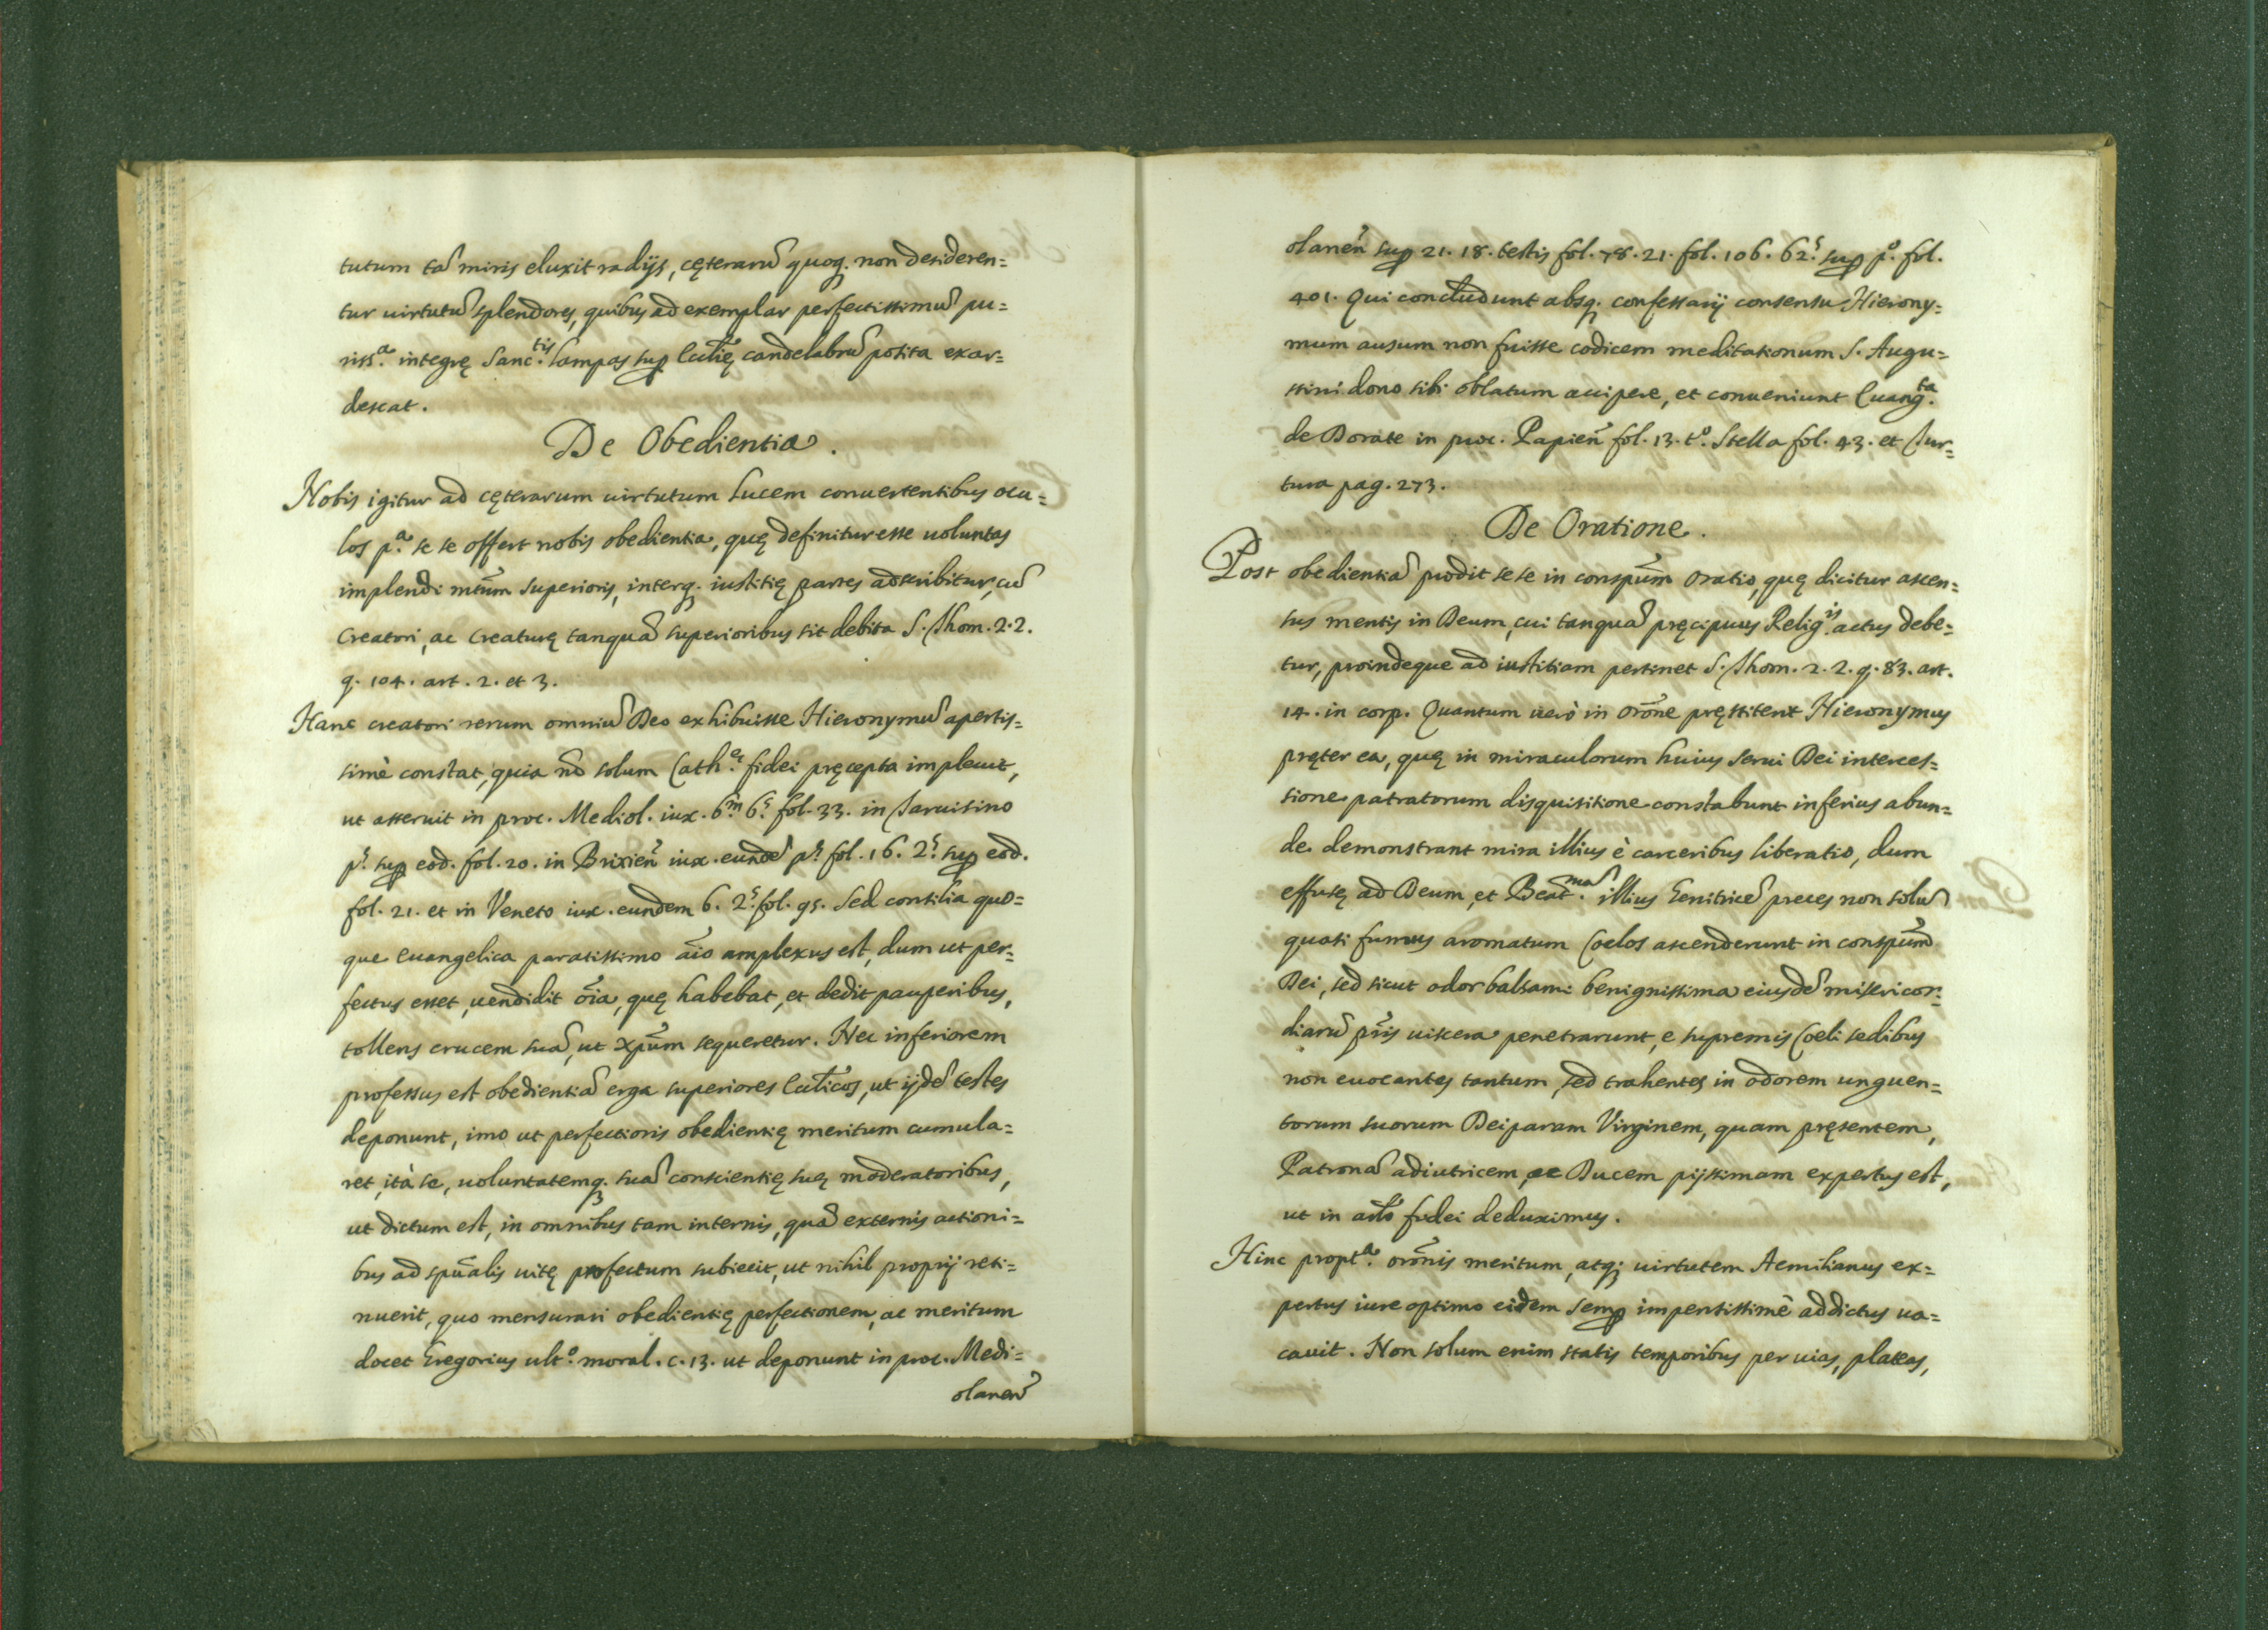 tutum tā miris eluxit radijs, cęterarū quoq. non desideren=
tur uirtutū splendores, quibus ad exemplar perfectissimū pu=
riss.ᵃ integrę Sanc.ᵗⁱˢ lampas sup Ecclię candelabrū posita exar=
descat.
De Obedientia.
Nobis igitur ad cęterarum uirtutum lucem conuertentibus ocu=
los p.ᵃ se se offert nobis obedientia, quę definitur esse uoluntas
implendi mtūm superioris, interq. iustitię partes adscribitur, cū
Creatori, ac Creaturę tanquā superioribus sit debita S. Thom. 2.2.
q. 104. art. 2. et 3.
Hanc creatori rerum omniū Deo exhibuisse Hieronymū apertis=
simè constat, quia nō solum Cath.ᵉ fidei pręcepta impleuit,
ut asseruit in proc. Mediol. iux. 6.ᵐ 6.ˢ fol. 33. in Taruisino
p.ˢ sup eod. fol. 20. in Brixieñ iux. eundē p.ˢ fol. 16. 2.ˢ sup eod.
fol. 21. et in Veneto iux. eundem 6. 2.ˢ fol. 95. Sed consilia quo=
que Euangelica paratissimo aīo amplexus est, dum ut per=
fectus esset, uendidit oīa, quę habebat, et dedit pauperibus,
tollens crucem suā, ut Xpūm sequeretur. Nec inferiorem
professus est obedientiā erga superiores Ecclīcos, ut ijdē testes
deponunt, imo ut perfectioris obedientię meritum cumula=
ret, ità se, uoluntatemq. suā conscientię suę moderatoribus,
ut dictum est, in omnibus tam internis, quā externis actioni=
bus ad spūalis uitę profectum subiecit, ut nihil proprij reti=
nuerit, quo mensurari obedientię perfectionem, ac meritum
docet Gregorius ult.° moral. c. 13. ut deponunt in proc. Medi=
olaneñ
olaneñ sup 21. 18. testis fol. 78. 21. fol. 106. 62.ˢ sup p.° fol.
401. Qui concludunt absq. confessarij consensu Hierony=
mum ausum non fuisse codicem meditationum S. Augu=
stini dono sibi oblatum accipere, et conueniunt Euang.ᵗᵃ
de Dorate in proc. Papieñ fol. 13. t.° Stella fol. 43. et Tur=
tura pag. 273.
De Oratione.
Post obedientiā prodit se se in conspūm Oratio, quę dicitur ascen=
sus mentis in Deum, cui tanquā pręcipuus Relig.ⁱˢ actus debe=
tur, proindeque ad iustitiam pertinet S. Thom. 2. 2. q. 83. art.
14. in corp. Quantum uerò in orōne pręstiterit Hieronymus
pręter ea, quę in miraculorum huius serui Dei interces=
sione patratorum disquisitione constabunt inferius abun=
de demonstrant mira illius è carceribus liberatio, dum
effusę ad Deum, et Beat.ᵐᵃ̄ illius Genitricē preces non solū
quasi fumus aromatum Coelos ascenderunt in conspūm
Dei, sed sicut odor balsami benignissima eiusdē misericor=
diarū prīs uiscera penetrarunt, e supremis Coeli sedibus
non euocantes tantum, sed trahentes in odorem unguen=
torum suorum Deiparam Virginem, quam pręsentem,
Patronā adiutricem, ac Ducem pijssimam expertus est,
ut in art̄o fidei deduximus.
Hinc propt.ᵃ orōnis meritum, atq; uirtutem Aemilianus ex=
pertus iure optimo eidem semp impensissimè addictus ua=
cauit. Non solum enim statis temporibus per uias, plateas,